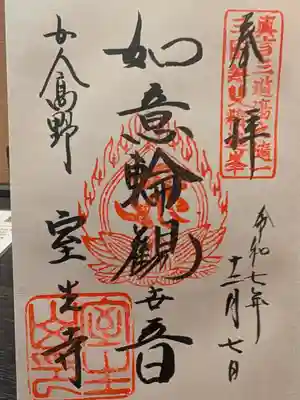 奉拝
令和七年
十二月七日
如意輪観世音
女人高野
室生寺